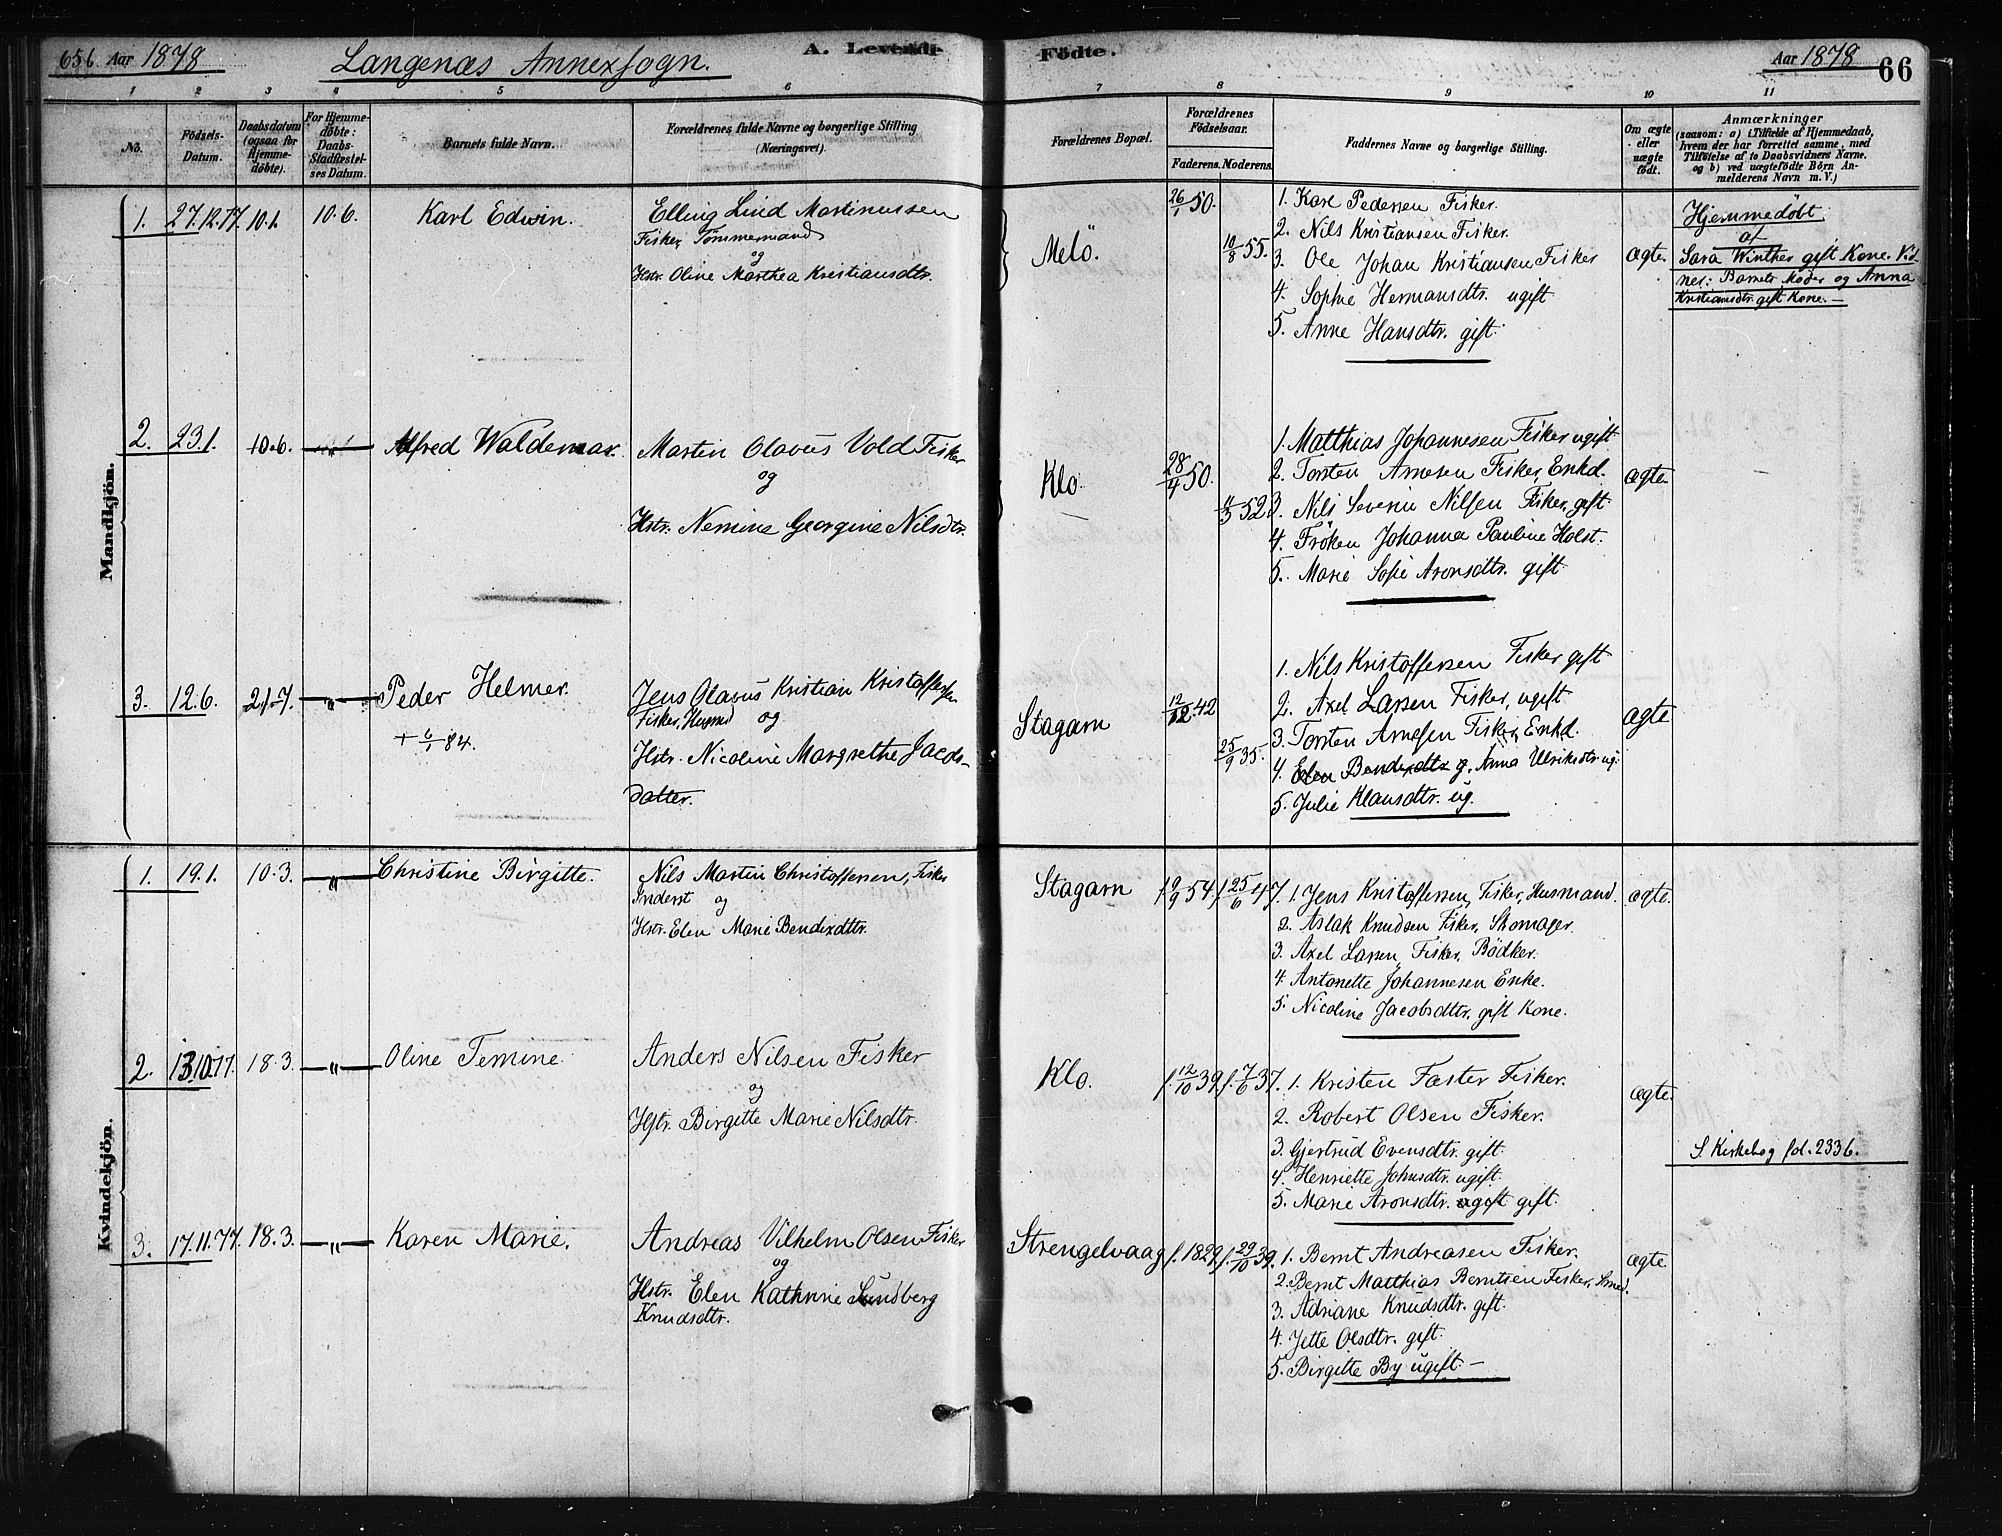 656 Aar 1878 Langenæs Annexsogn. A. Levende
Födte. Aar 1878 66
1 2 3 4 5 6
7 8 9 10 11
No.
Födsels-Datum.
Daabsdatum (ogsaa for Hjemme-döbte).
For Hjemme-döbte: Daabs-Stadfæstel-ses Datum.
Barnets fulde Navn.
Forældrenes fulde Navne og borgerlige Stilling
(Næringsvei).
Forældrenes Bopæl.
Forældrenes Födselsaar.
Faderens. Moderens.
Faddernes Navne og borgerlige Stilling.
Om ægte eller uægte födt.
Anmærkninger
(saasom: a) i Tilfælde af Hjemmedaab,
hvem der har forrettet samme, med
Tilföielse af to Daabsvidners Navne.
og b) ved uægtefödte Börn An-
melderens Navn m. V.)
Mandkjön.
1. 27.12.77. 10.1. 10.6. Karl Edwin.
Elling Lind Martinussen
Fisker, Tömmermand
og
Hstr. Oline Marthea Kristiansdtr.
Melö. 26/1 50. 10/8 55.
1. Karl Pedersen Fisker.
2. Nils Kristiansen Fisker.
3. Ole Johan Kristiansen Fisker
4. Sophie Hermansdtr. ugift
5. Anne Hansdtr. gift.
ægte.
Hjemmedöbt
af
Sara Winther gift Kone. Vid
ner: Barnets Moder og Anna
Kristiansdtr. gift Kone. —
2. 23.1. 10.6. Alfred Waldemar.
Martin Olavus Vold Fisker
og
Hstr. Nemine Georgine Nilsdtr.
Klo. 28/4 50. 11/3 52.
1. Matthias Johannesen Fisker ugift
2. Torsten Arnesen Fisker, Enkd.
3. Nils Severin Nilsen Fisker, gift.
4. Fröken Johanna Pauline Holst.
5. Marie Sofie Aronsdtr. gift
ægte.
3. 12.6. 21.7. — " — Peder Helmer.
+ 6/1 84.
Jens Olavus Kristian Kristoffersen
Fisker, Husmd og
Hstr. Nicoline Margrethe Jacobs-
datter.
Stagarn 12/12 42 25/9 35.
1. Nils Kristoffersen Fisker gift
2. Axel Larsen Fisker, ugift.
3. Torsten Arnesen Fisker, Enkd.
4. Elen Bendixdtr g. Anna Ulriksdtr ug.
5. Julie Klausdtr. ug.
ægte
Kvindekjön.
1. 19.1. 10.3. — " — Christine Birgitte.
Nils Martin Christoffersen, Fisker
Inderst og
Hstr. Elen Marie Bendixdtr.
Stagarn f. 9/9 54. f. 25/6 47.
1. Jens Kristoffersen, Fisker, Husmand.
2. Aslak Knudsen Fisker, Skomager.
3. Axel Larsen, Fisker, Bödker.
4. Antonette Johannesen Enke.
5. Nicoline Jacobsdtr. gift Kone.
ægte.
2. 13.10.77. 18.3. — " — Oline Temine.
Anders Nilsen Fisker
og
Hstr. Birgitte Marie Nilsdtr.
Klo. f. 12/10 39. f. 7/6 37.
1. Kristen Faster Fisker.
2. Robert Olsen Fisker.
3. Gjertrud Evensdtr. gift.
4. Henriette Johnsdtr. ugift.
5. Marie Aronsdtr. ugift gift.
ægte.
S Kirkebog fol. 2336.
3. 17.11.77. 18.3. — " — Karen Marie.
Andreas Vilhelm Olsen Fisker
og
Hstr. Elen Kathrine Sundberg
Knudsdtr.
Strengelvaag f. 1829. f. 29/10 39.
1. Bernt Andreasen Fisker.
2. Bernt Matthias Berntsen Fisker, Smed.
3. Adriane Knudsdtr. gift.
4. Jette Olsdtr. gift.
5. Birgitte By ugift. —
ægte.